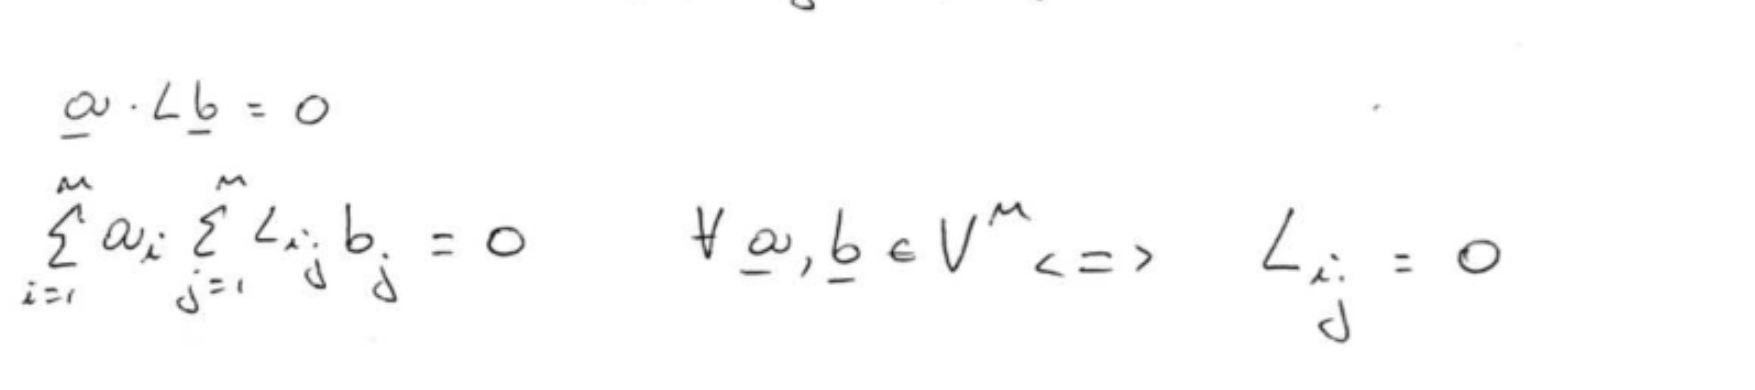 a · L b = 0
∑_{i=1}^{n} a_i ∑_{j=1}^{n} L_{ij} b_j = 0 ∀ a, b ∈ V^n <=> L_{ij} = 0